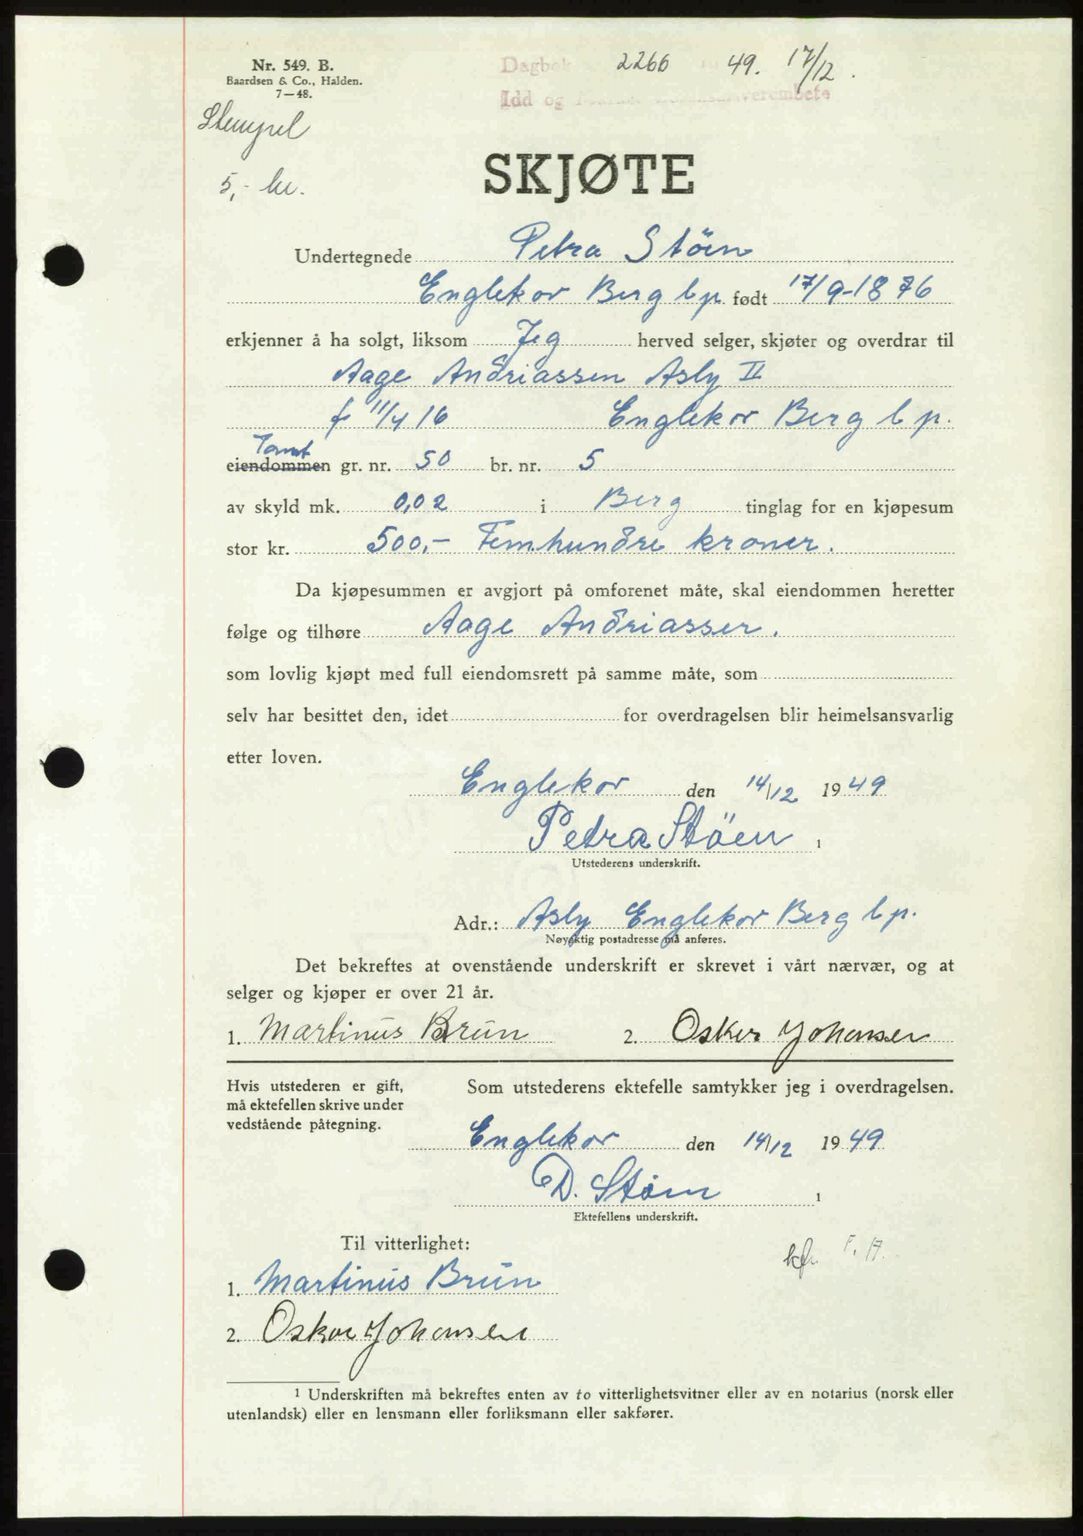 Nr. 549. B.
Baardsen & Co., Halden.
7—48.
Dagbok 2266 49. 17/12.
Idd og
Stempel
5,- kr.
SKJØTE
Undertegnede Petra Stöen
Englekor Berg b.p. født 17/9-1876
erkjenner å ha solgt, liksom Jeg herved selger, skjøter og overdrar til
Aage Andriassen Asby II
f 11/4 16 Englekor Berg b.p.
Tomt
eiendommen gr. nr. 50 br. nr. 5
av skyld mk. 0,02 i Berg tinglag for en kjøpesum
stor kr. 500,- Femhundre kroner.
Da kjøpesummen er avgjort på omforenet måte, skal eiendommen heretter
følge og tilhøre Aage Andriassen.
som lovlig kjøpt med full eiendomsrett på samme måte, som
selv har besittet den, idet for overdragelsen blir heimelsansvarlig
etter loven.
Englekor den 14/12 1949
Petra Stöen 1
Utstederens underskrift.
Adr.: Asby Englekor Berg b.p.
Nøyaktig postadresse må anføres.
Det bekreftes at ovenstående underskrift er skrevet i vårt nærvær, og at
selger og kjøper er over 21 år.
1. Martinus Brun 2. Oskar Johansen
Hvis utstederen er gift,
må ektefellen skrive under
vedstående påtegning.
Som utstederens ektefelle samtykker jeg i overdragelsen.
Englekor den 14/12 1949
D. Stöen 1
Ektefellens underskrift.
Til vitterlighet:
1. Martinus Brun
2. Oskar Johansen
1 Underskriften må bekreftes enten av to vitterlighetsvitner eller av en notarius (norsk eller
utenlandsk) eller en lensmann eller forliksmann eller sakfører.